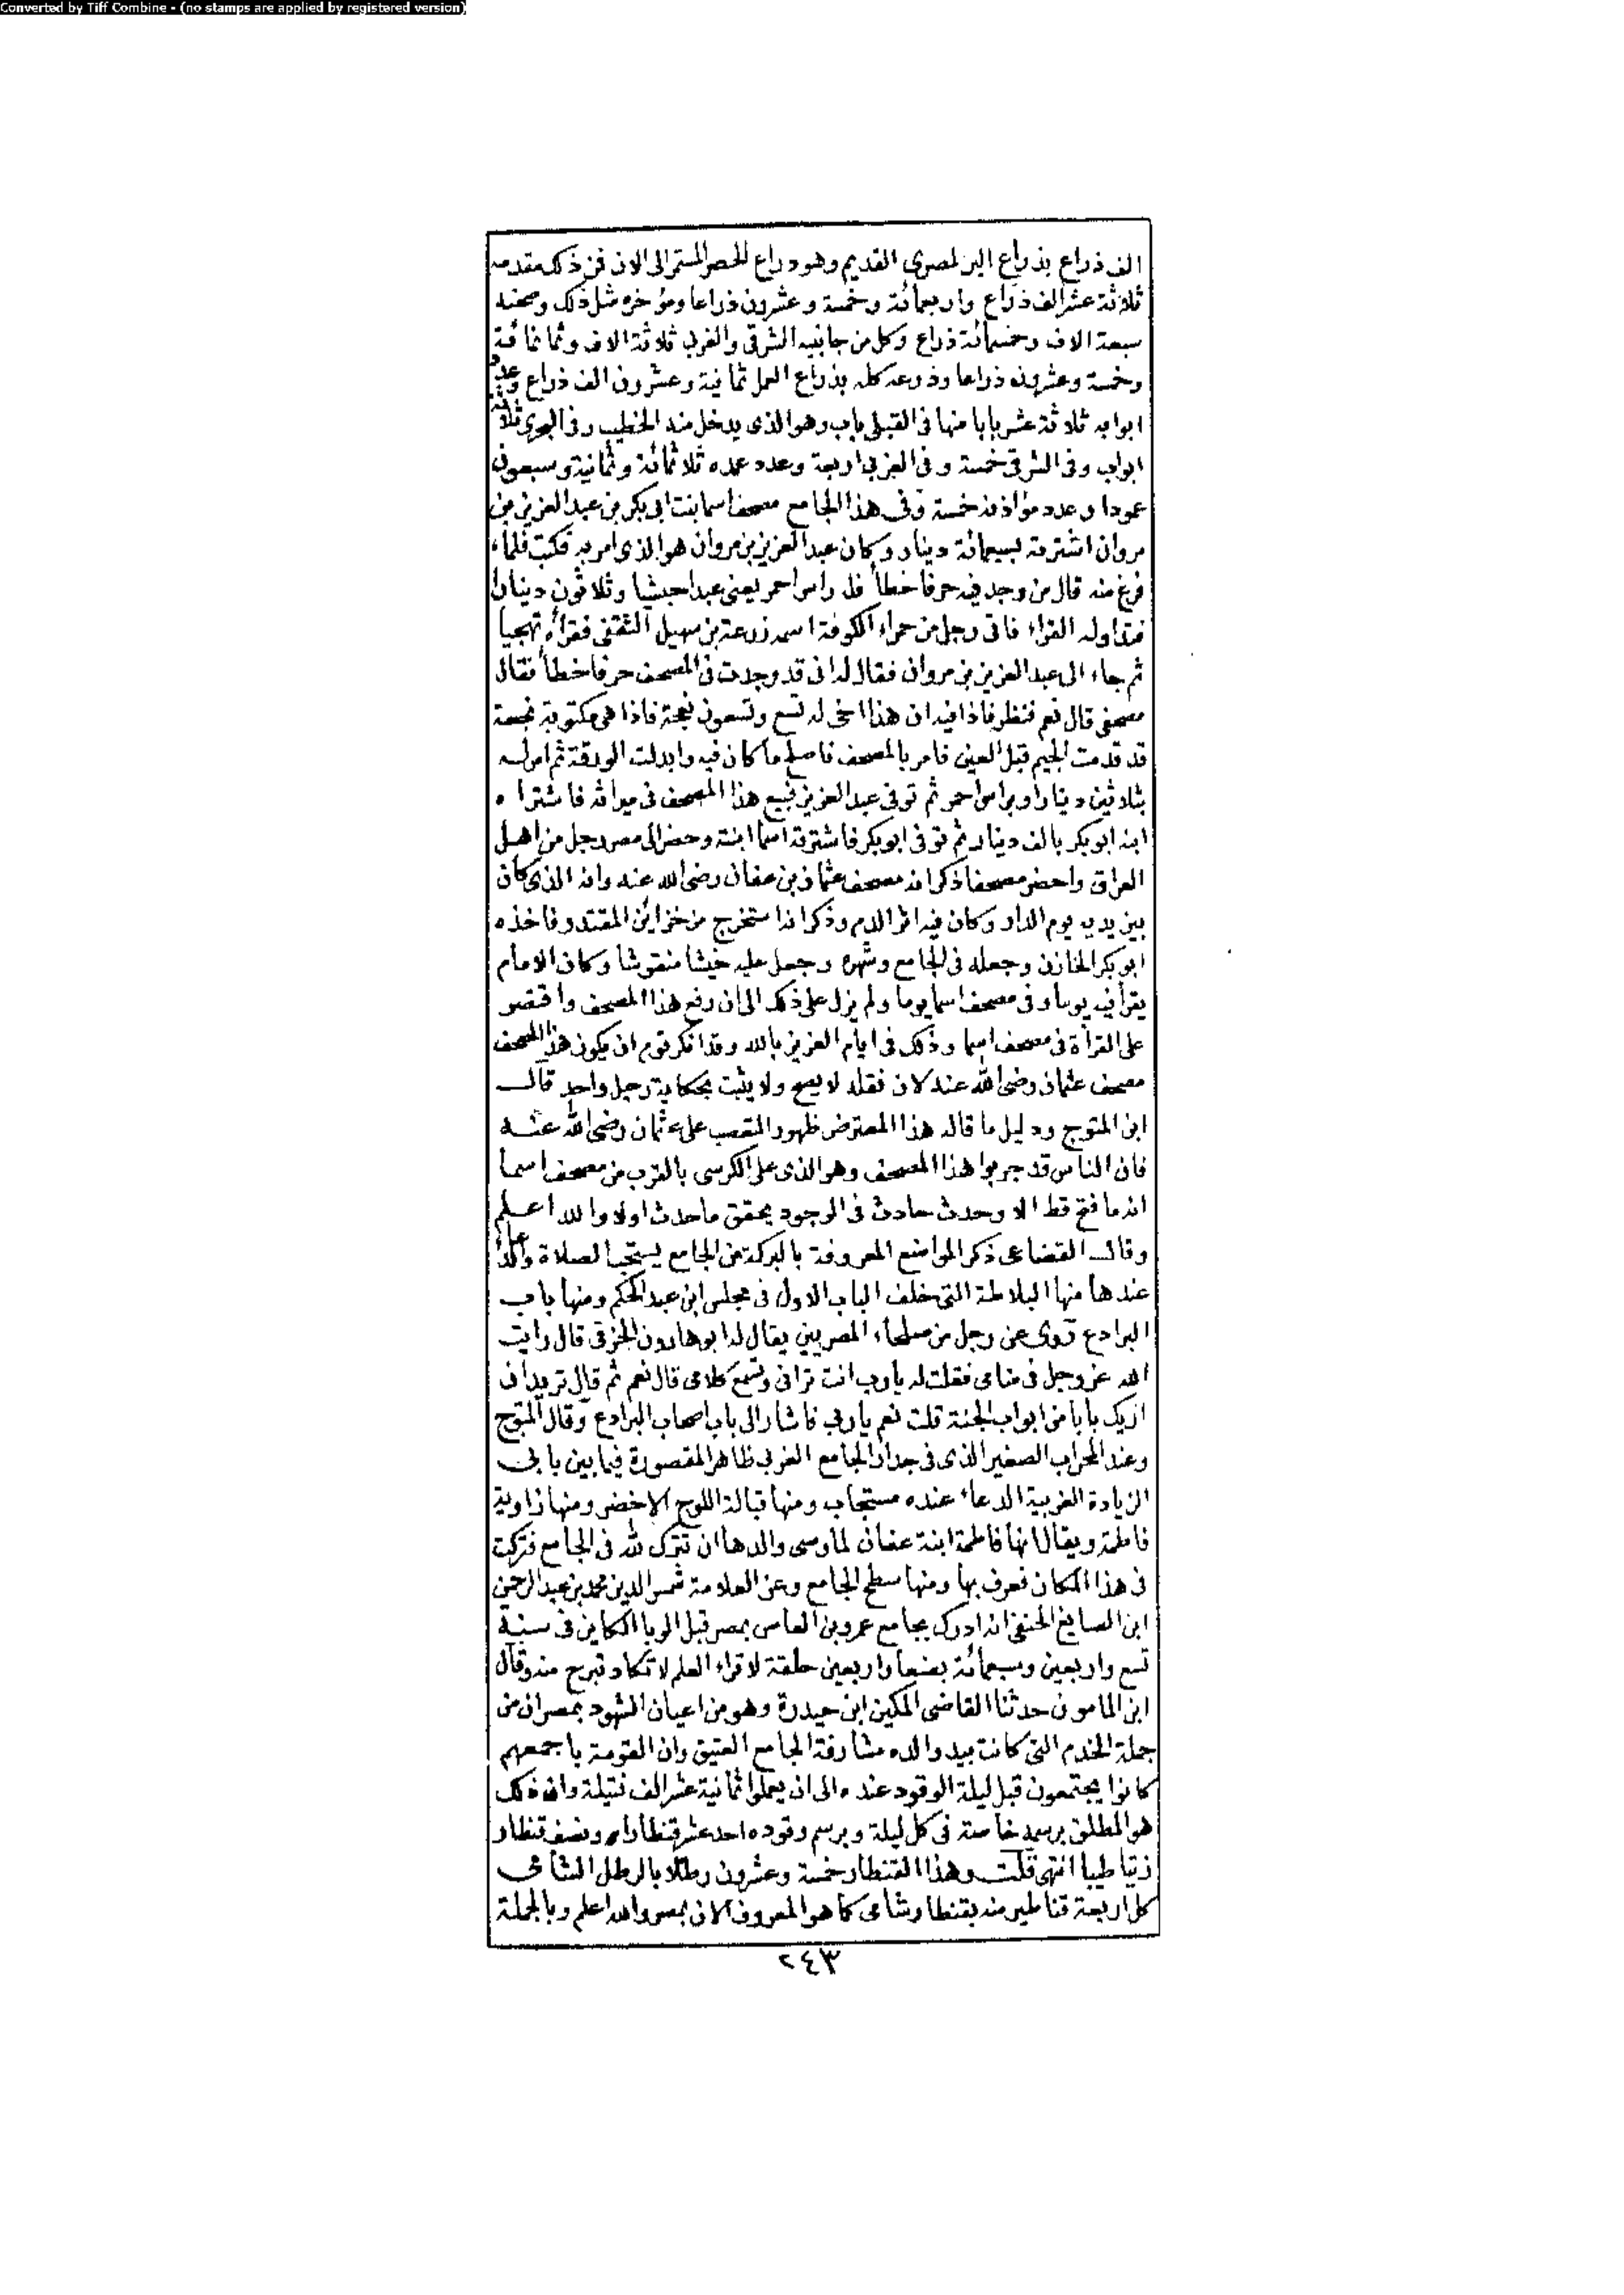 Converted by Tiff Combine - (no stamps are applied by registered version)
الف ذراع بذراع البز المصرى القديم وهو ذراع الحصر المستمر الى الان فمن ذلك مقدمه
ثلاثة عشر الف ذراع واربعمائة وخمسة وعشرون ذراعا ومؤخره مثل ذلك وصحنه
سبعة الاف وخمسمائة ذراع وكل من جانبيه الشرقى والغربى ثلاثة الاف وثمانمائة
وخمسة وعشرون ذراعا وذرعه كله بذراع العمل ثمانية وعشرون الف ذراع وعدد
ابوابه ثلاثة عشر بابا منها فى القبلى باب وهو الذى يدخل منه الخطيب وفى البحرى ثلاثة
ابواب وفى الشرقى خمسة وفى الغربى اربعة وعدد عمده ثلاثمائة وثمانية وسبعون
عمودا وعدد مؤاذنه خمسة وفى هذا الجامع مصحف اسما بنت ابى بكر بن عبد العزيز بن
مروان اشترته بسبعمائة دينار وكان عبد العزيز بن مروان هو الذى امر به فكتب فلما
فرغ منه قال من وجد فيه حرفا خطأ فله راس احمر يعنى عبدا حبشيا وثلاثون دينارا
فتداوله القراء فاتى رجل من حمراء الكوفة اسمه زرعة بن سهيل الثقفى فقرأه تهجيا
ثم جاء الى عبد العزيز بن مروان فقال له انى قد وجدت فى المصحف حرفا خطأ فقال
مصحفى قال نعم فنظر فاذا فيه ان هذا اخى له تسع وتسعون نعجة فاذا هى مكتوبة نجعة
قد قدمت الجيم قبل العين فامر بالمصحف فاصلح ما كان فيه وابدلت الورقة ثم امر له
بثلاثين دينارا وبراس احمر ثم توفى عبد العزيز فبيع هذا المصحف فى ميراثه فاشتراه
ابنه ابو بكر بالف دينار ثم توفى ابو بكر فاشترته اسما ابنته وحضر الى مصر رجل من اهل
العراق واحضر مصحفا ذكر انه مصحف عثمان بن عفان رضى الله عنه وانه الذى كان
بين يديه يوم الدار وكان فيه اثر الدم وذكر انه استخرج من خزائن المقتدر فاخذه
ابو بكر الخازن وجعله فى الجامع وشهره وجعل عليه خشبا منقوشا وكان الامام
يقرأ فيه يوما وفى مصحف اسما يوما ولم يزل على ذلك الى ان رفع هذا المصحف واقتصر
على القراة فى مصحف اسما وذلك فى ايام العزيز بالله وقد انكر قوم ان يكون هذا المصحف
مصحف عثمان رضى الله عنه لان نقله لا يصح ولا يثبت بحكاية رجل واحد قال
ابن المتوج ودليل ما قاله هذا المعترض ظهور التعصب على عثمان رضى الله عنه
فان الناس قد جربوا هذا المصحف وهو الذى على الكرسى بالقرب من مصحف اسما
انه ما فتح قط الا وحدث حادث فى الوجود يحقق ما حدث اولا والله اعلم
وقال القضاعى ذكر المواضع المعروفة بالبركة من الجامع يستحب الصلاة والدعا
عندها منها البلاطة التى خلف الباب الاول فى مجلس ابن عبد الحكم ومنها باب
البرادع روى عن رجل من صلحاء المصريين يقال له ابو هارون الخرقى قال رايت
الله عز وجل فى منامى فقلت له يا رب انت ترانى وتسمع كلامى قال نعم ثم قال تريد ان
اريك بابا من ابواب الجنة قلت نعم يا ربى فاشار الى باب اصحاب البرادع وقال المتوج
وعند المحراب الصغير الذى فى جدار الجامع الغربى ظاهر المقصورة فيما بين بابى
الزيادة الغربية الدعاء عنده مستجاب ومنها قبالة اللوح الاخضر ومنها زاوية
فاطمة ويقال انها فاطمة ابنة عفان لما وصى والدها ان تترك لله فى الجامع فتركت
فى هذا المكان فعرف بها ومنها سطح الجامع وعن العلامة شمس الدين محمد بن عبد الرحمن
ابن الصايغ الحنفى انه ادرك بجامع عمرو بن العاص بمصر قبل الوبا الكاين فى سنة
تسع واربعين وسبعمائة بضعا واربعين حلقة لاقراء العلم لا تكاد تبرح منه وقال
ابن المامون حدثنا القاضى المكين ابن حيدرة وهو من اعيان الشهود بمصر ان من
جملة الخدم التى كانت بيد والده مشارفة الجامع العتيق وان القومة باجمعهم
كانوا يجتمعون قبل ليلة الوقود عنده الى ان يعملوا ثمانية عشر الف فتيلة وان ذلك
هو المطلق برسمه خاصة فى كل ليلة وبرسم وقوده احد عشر قنطارا ونصف قنطار
زيتا طيبا انتهى قلت وهذا القنطار خمسة وعشرون رطلا بالرطل الشامى
كل اربعة قناطير منه بقنطار شامى كما هو المعروف الان بمصر والله اعلم وبالجملة
٢٤٣